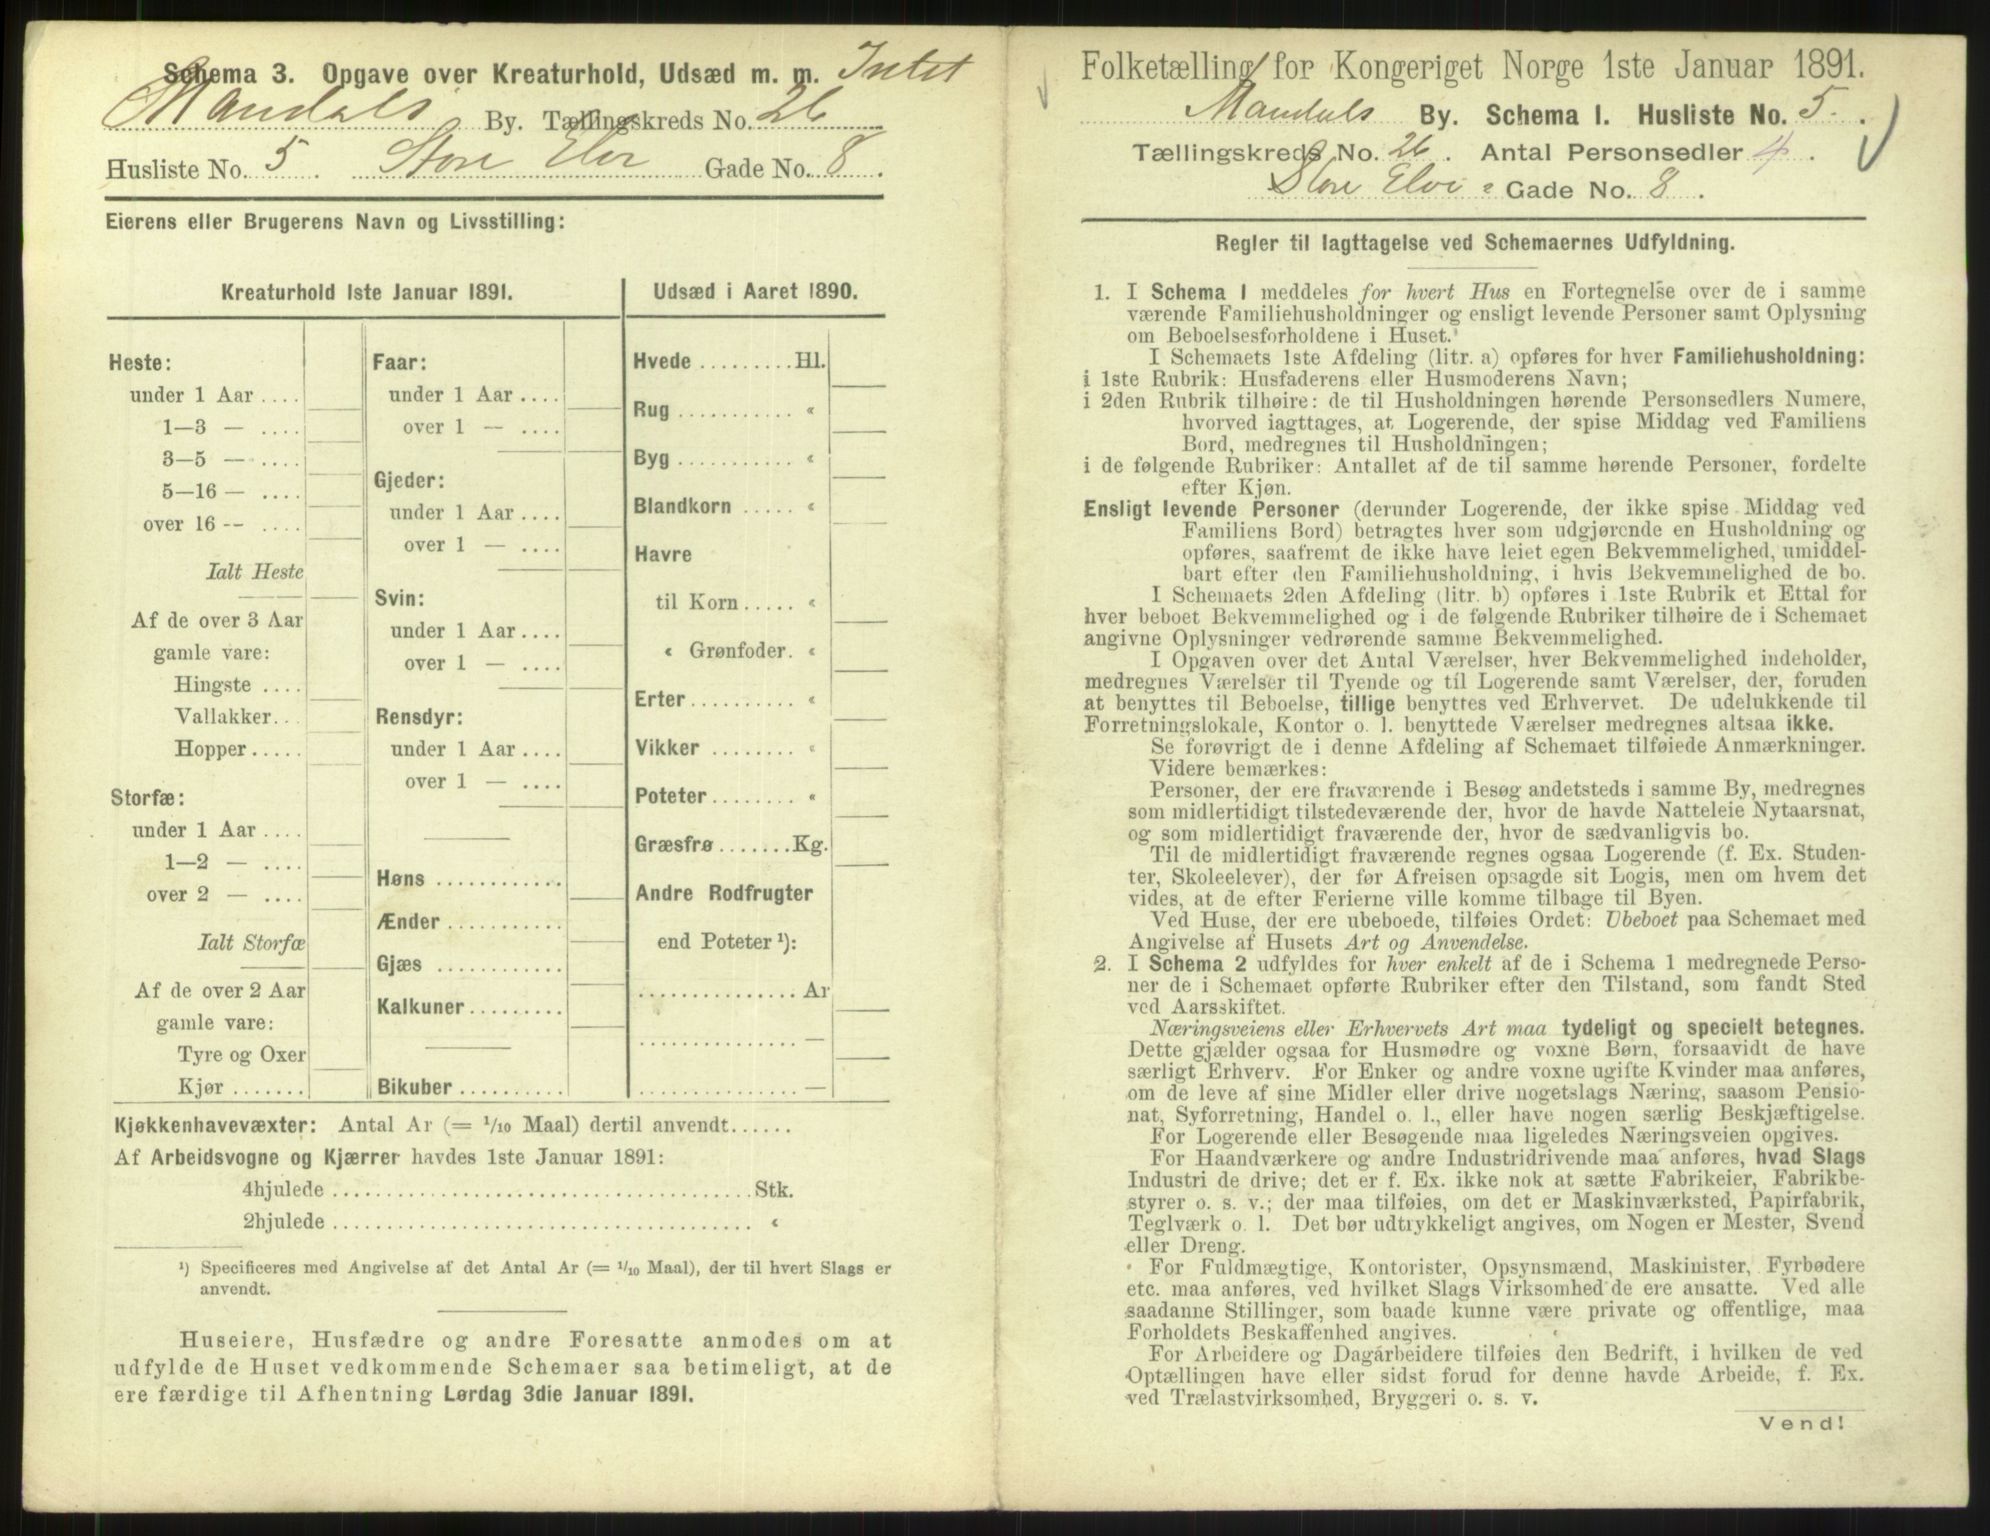 Schema 3. Opgave over Kreaturhold, Udsæd m. m. Intet
Mandals By. Tællingskreds No. 26
Husliste No. 5 . Store Elve Gade No. 8 .
Eierens eller Brugerens Navn og Livsstilling:
Kreaturhold 1ste Januar 1891.
Heste:
under 1 Aar ....
1—3 — ....
3—5 — ....
5—16 — ....
over 16 -- ....
Ialt Heste
Af de over 3 Aar
gamle vare:
Hingste ....
Vallakker...
Hopper.....
Storfæ:
under 1 Aar ....
1—2 — ....
over 2 — ....
Ialt Storfæ
Af de over 2 Aar
gamle vare:
Tyre og Oxer
Kjør .......
Faar:
under 1 Aar ....
over 1 — ....
Gjeder:
under 1 Aar ....
over 1 — ....
Svin:
under 1 Aar ....
over 1 — ....
Rensdyr:
under 1 Aar ....
over 1 — ....
Høns ............
Ænder ...........
Gjæs ............
Kalkuner.........
Bikuber ..........
Udsæd i Aaret 1890.
Hvede ......... Hl.
Rug ........... «
Byg ........... «
Blandkorn ..... «
Havre
til Korn ..... «
« Grønfoder. «
Erter .......... «
Vikker ........ «
Poteter ........ «
Græsfrø ....... Kg.
Andre Rodfrugter
end Poteter ¹):
............... Ar
............... —
............... —
Kjøkkenhavevæxter: Antal Ar (= 1/10 Maal) dertil anvendt......
Af Arbeidsvogne og Kjærrer havdes 1ste Januar 1891:
4hjulede ........................................ Stk.
2hjulede ........................................ «
¹) Specificeres med Angivelse af det Antal Ar (= 1/10 Maal), der til hvert Slags er
anvendt.
Huseiere, Husfædre og andre Foresatte anmodes om at
udfylde de Huset vedkommende Schemaer saa betimeligt, at de
ere færdige til Afhentning Lørdag 3die Januar 1891.
Folketælling for Kongeriget Norge 1ste Januar 1891.
Mandals By. Schema I. Husliste No. 5 .
Tællingskreds No. 26 . Antal Personsedler 4 .
Store Elve = Gade No. 8 .
Regler til Iagttagelse ved Schemaernes Udfyldning.
1. I Schema 1 meddeles for hvert Hus en Fortegnelse over de i samme
værende Familiehusholdninger og ensligt levende Personer samt Oplysning
om Beboelsesforholdene i Huset.
I Schemaets 1ste Afdeling (litr. a) opføres for hver Familiehusholdning:
i 1ste Rubrik: Husfaderens eller Husmoderens Navn;
i 2den Rubrik tilhøire: de til Husholdningen hørende Personsedlers Numere,
hvorved iagttages, at Logerende, der spise Middag ved Familiens
Bord, medregnes til Husholdningen;
i de følgende Rubriker: Antallet af de til samme hørende Personer, fordelte
efter Kjøn.
Ensligt levende Personer (derunder Logerende, der ikke spise Middag ved
Familiens Bord) betragtes hver som udgjørende en Husholdning og
opføres, saafremt de ikke have leiet egen Bekvemmelighed, umiddel-
bart efter den Familiehusholdning, i hvis Bekvemmelighed de bo.
I Schemaets 2den Afdeling (litr. b) opføres i 1ste Rubrik et Ettal for
hver beboet Bekvemmelighed og i de følgende Rubriker tilhøire de i Schemaet
angivne Oplysninger vedrørende samme Bekvemmelighed.
I Opgaven over det Antal Værelser, hver Bekvemmelighed indeholder,
medregnes Værelser til Tyende og til Logerende samt Værelser, der, foruden
at benyttes til Beboelse, tillige benyttes ved Erhvervet. De udelukkende til
Forretningslokale, Kontor o. l. benyttede Værelser medregnes altsaa ikke.
Se forøvrigt de i denne Afdeling af Schemaet tilføiede Anmærkninger.
Videre bemærkes:
Personer, der ere fraværende i Besøg andetsteds i samme By, medregnes
som midlertidigt tilstedeværende der, hvor de havde Natteleie Nytaarsnat,
og som midlertidigt fraværende der, hvor de sædvanligvis bo.
Til de midlertidigt fraværende regnes ogsaa Logerende (f. Ex. Studen-
ter, Skoleelever), der før Afreisen opsagde sit Logis, men om hvem det
vides, at de efter Ferierne ville komme tilbage til Byen.
Ved Huse, der ere ubeboede, tilføies Ordet: Ubeboet paa Schemaet med
Angivelse af Husets Art og Anvendelse.
2. I Schema 2 udfyldes for hver enkelt af de i Schema 1 medregnede Perso-
ner de i Schemaet opførte Rubriker efter den Tilstand, som fandt Sted
ved Aarsskiftet.
Næringsveiens eller Erhvervets Art maa tydeligt og specielt betegnes.
Dette gjælder ogsaa for Husmødre og voxne Børn, forsaavidt de have
særligt Erhverv. For Enker og andre voxne ugifte Kvinder maa anføres,
om de leve af sine Midler eller drive nogetslags Næring, saasom Pensio-
nat, Syforretning, Handel o. l., eller have nogen særlig Beskjæftigelse.
For Logerende eller Besøgende maa ligeledes Næringsveien opgives.
For Haandværkere og andre Industridrivende maa anføres, hvad Slags
Industri de drive; det er f. Ex. ikke nok at sætte Fabrikeier, Fabrikbe-
styrer o. s. v.; der maa tilføies, om det er Maskinværksted, Papirfabrik,
Teglværk o. l. Det bør udtrykkeligt angives, om Nogen er Mester, Svend
eller Dreng.
For Fuldmægtige, Kontorister, Opsynsmænd, Maskinister, Fyrbødere
etc. maa anføres, ved hvilket Slags Virksomhed de ere ansatte. Ved alle
saadanne Stillinger, som baade kunne være private og offentlige, maa
Forholdets Beskaffenhed angives.
For Arbeidere og Dagarbeidere tilføies den Bedrift, i hvilken de ved
Optællingen have eller sidst forud for denne havde Arbeide, f. Ex.
ved Trælastvirksomhed, Bryggeri o. s. v.
Vend!